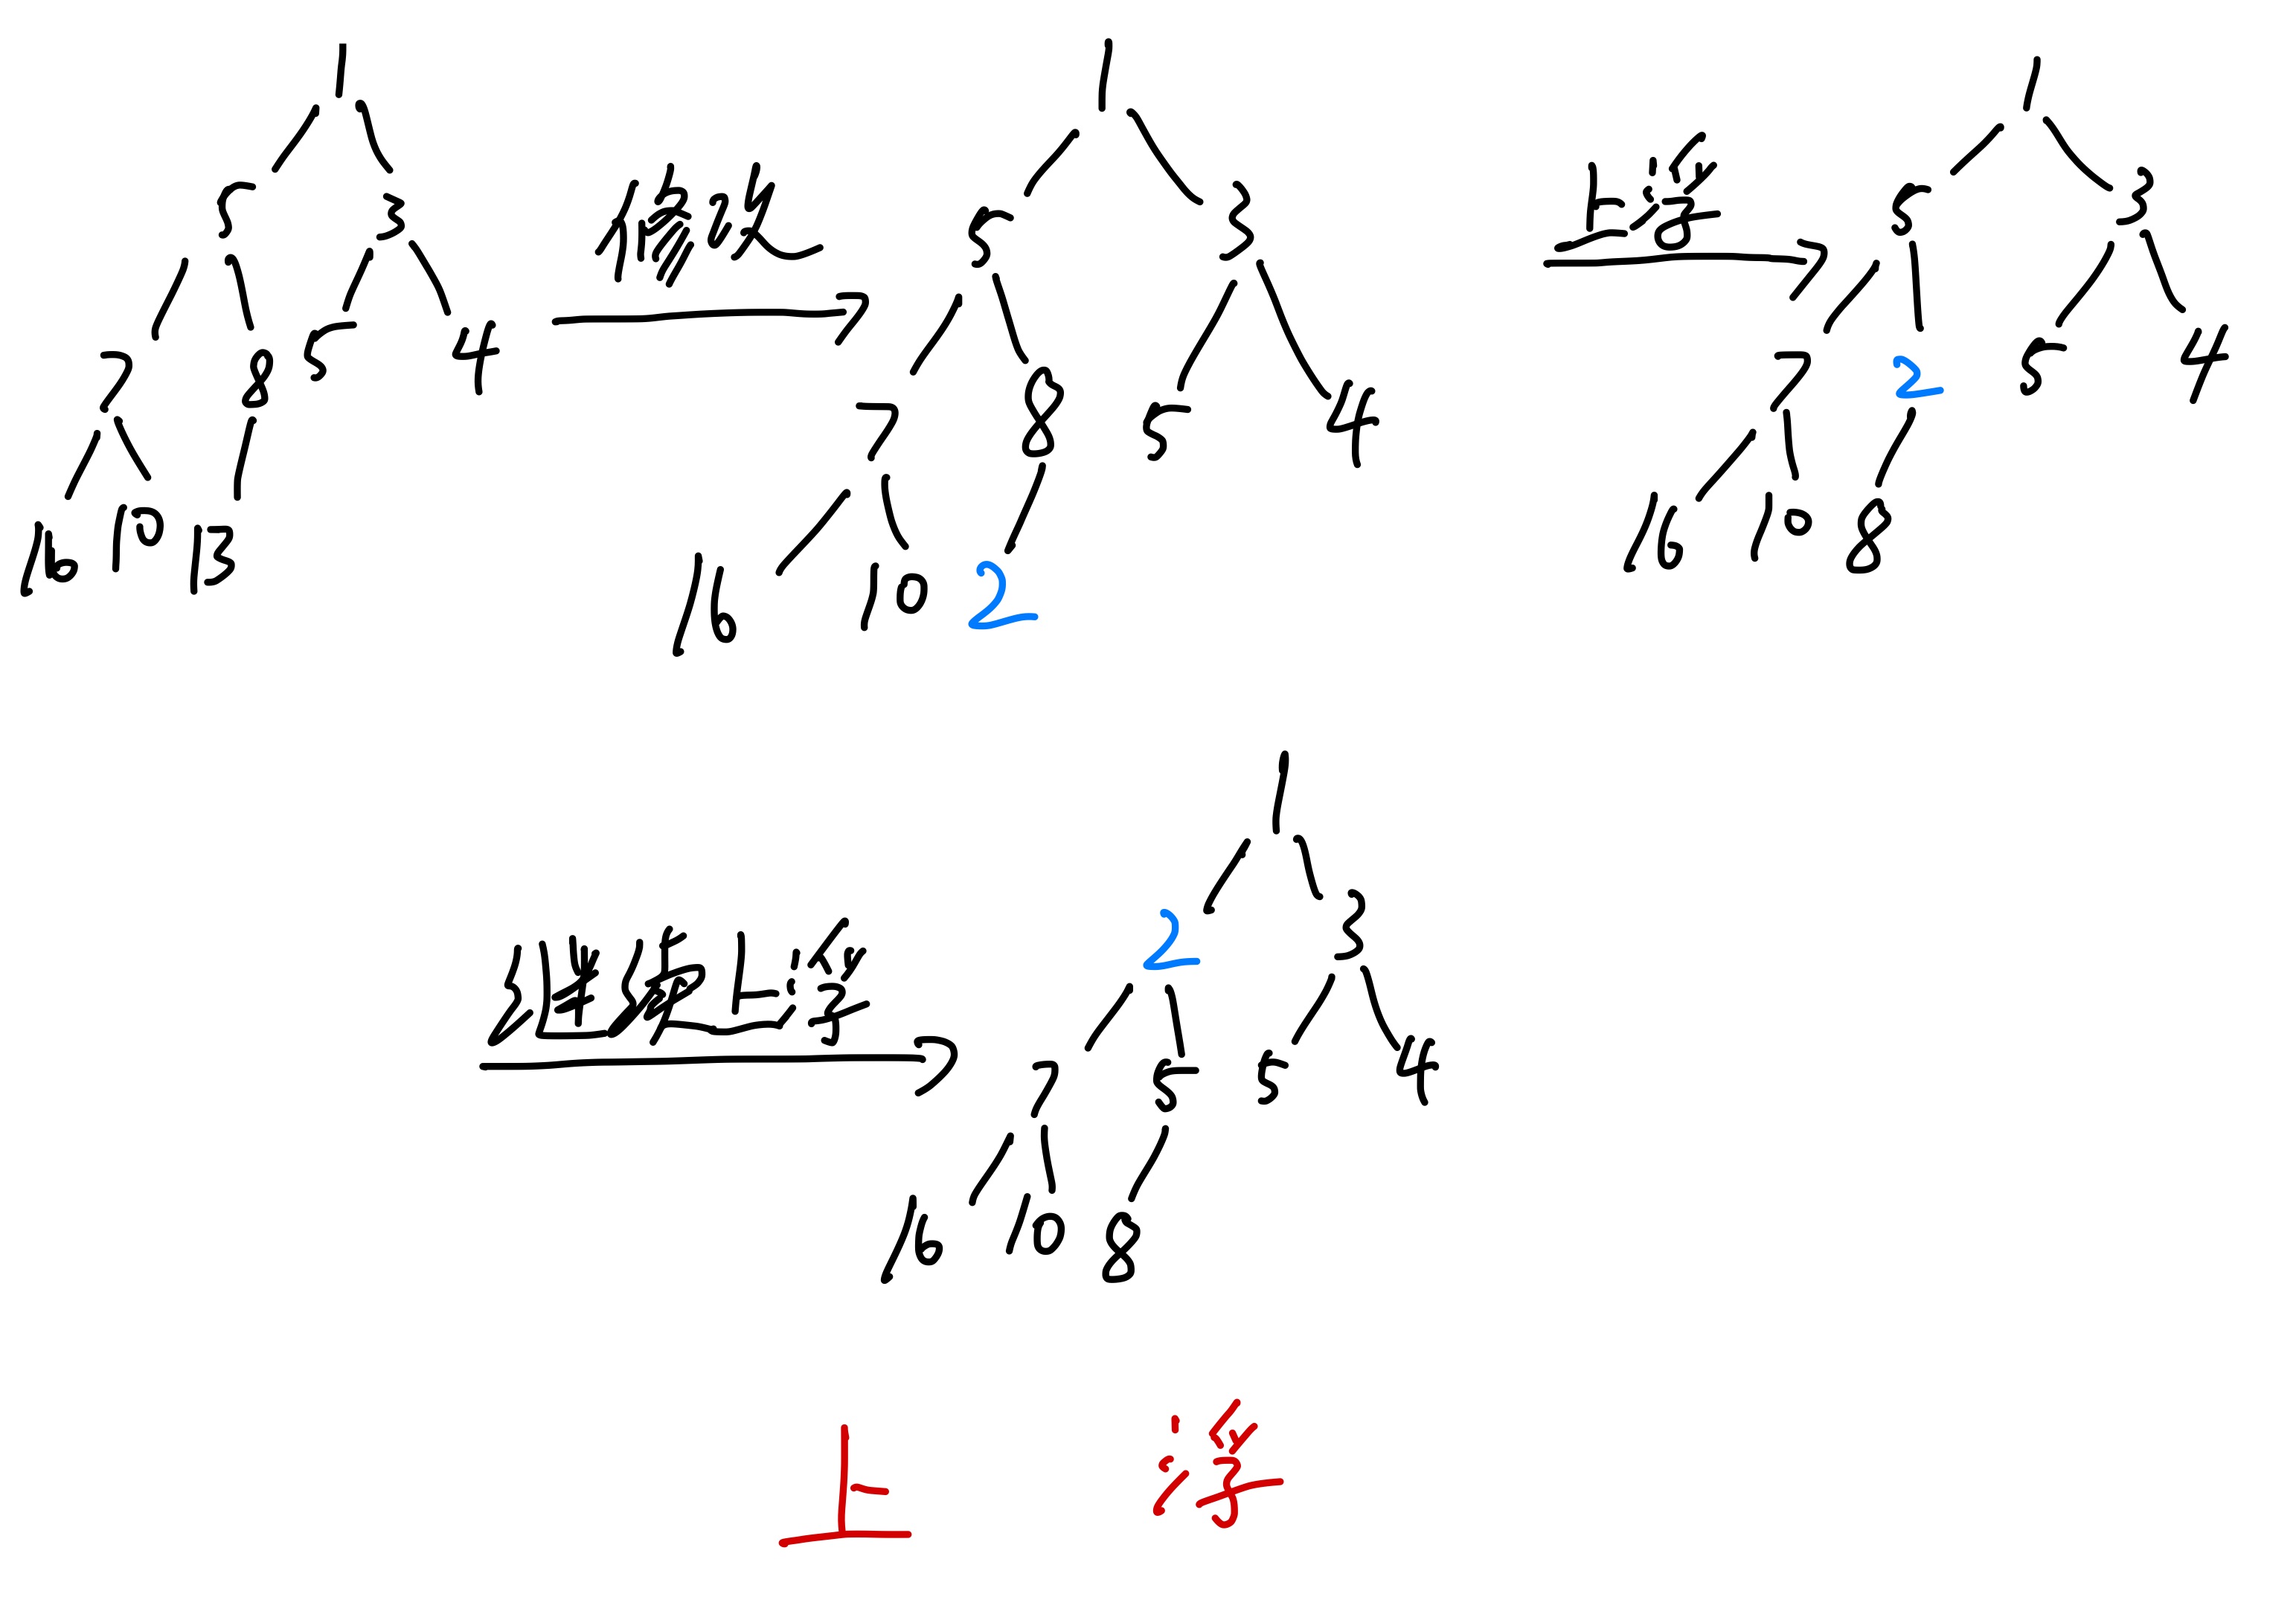 1
5 3
7 8 5 4
16 10 13
修改
1
5 3
7 8 5 4
16 10 2
上浮
1
5 3
7 2 5 4
16 10 8
继续上浮
1
2 3
7 5 5 4
16 10 8
上 浮